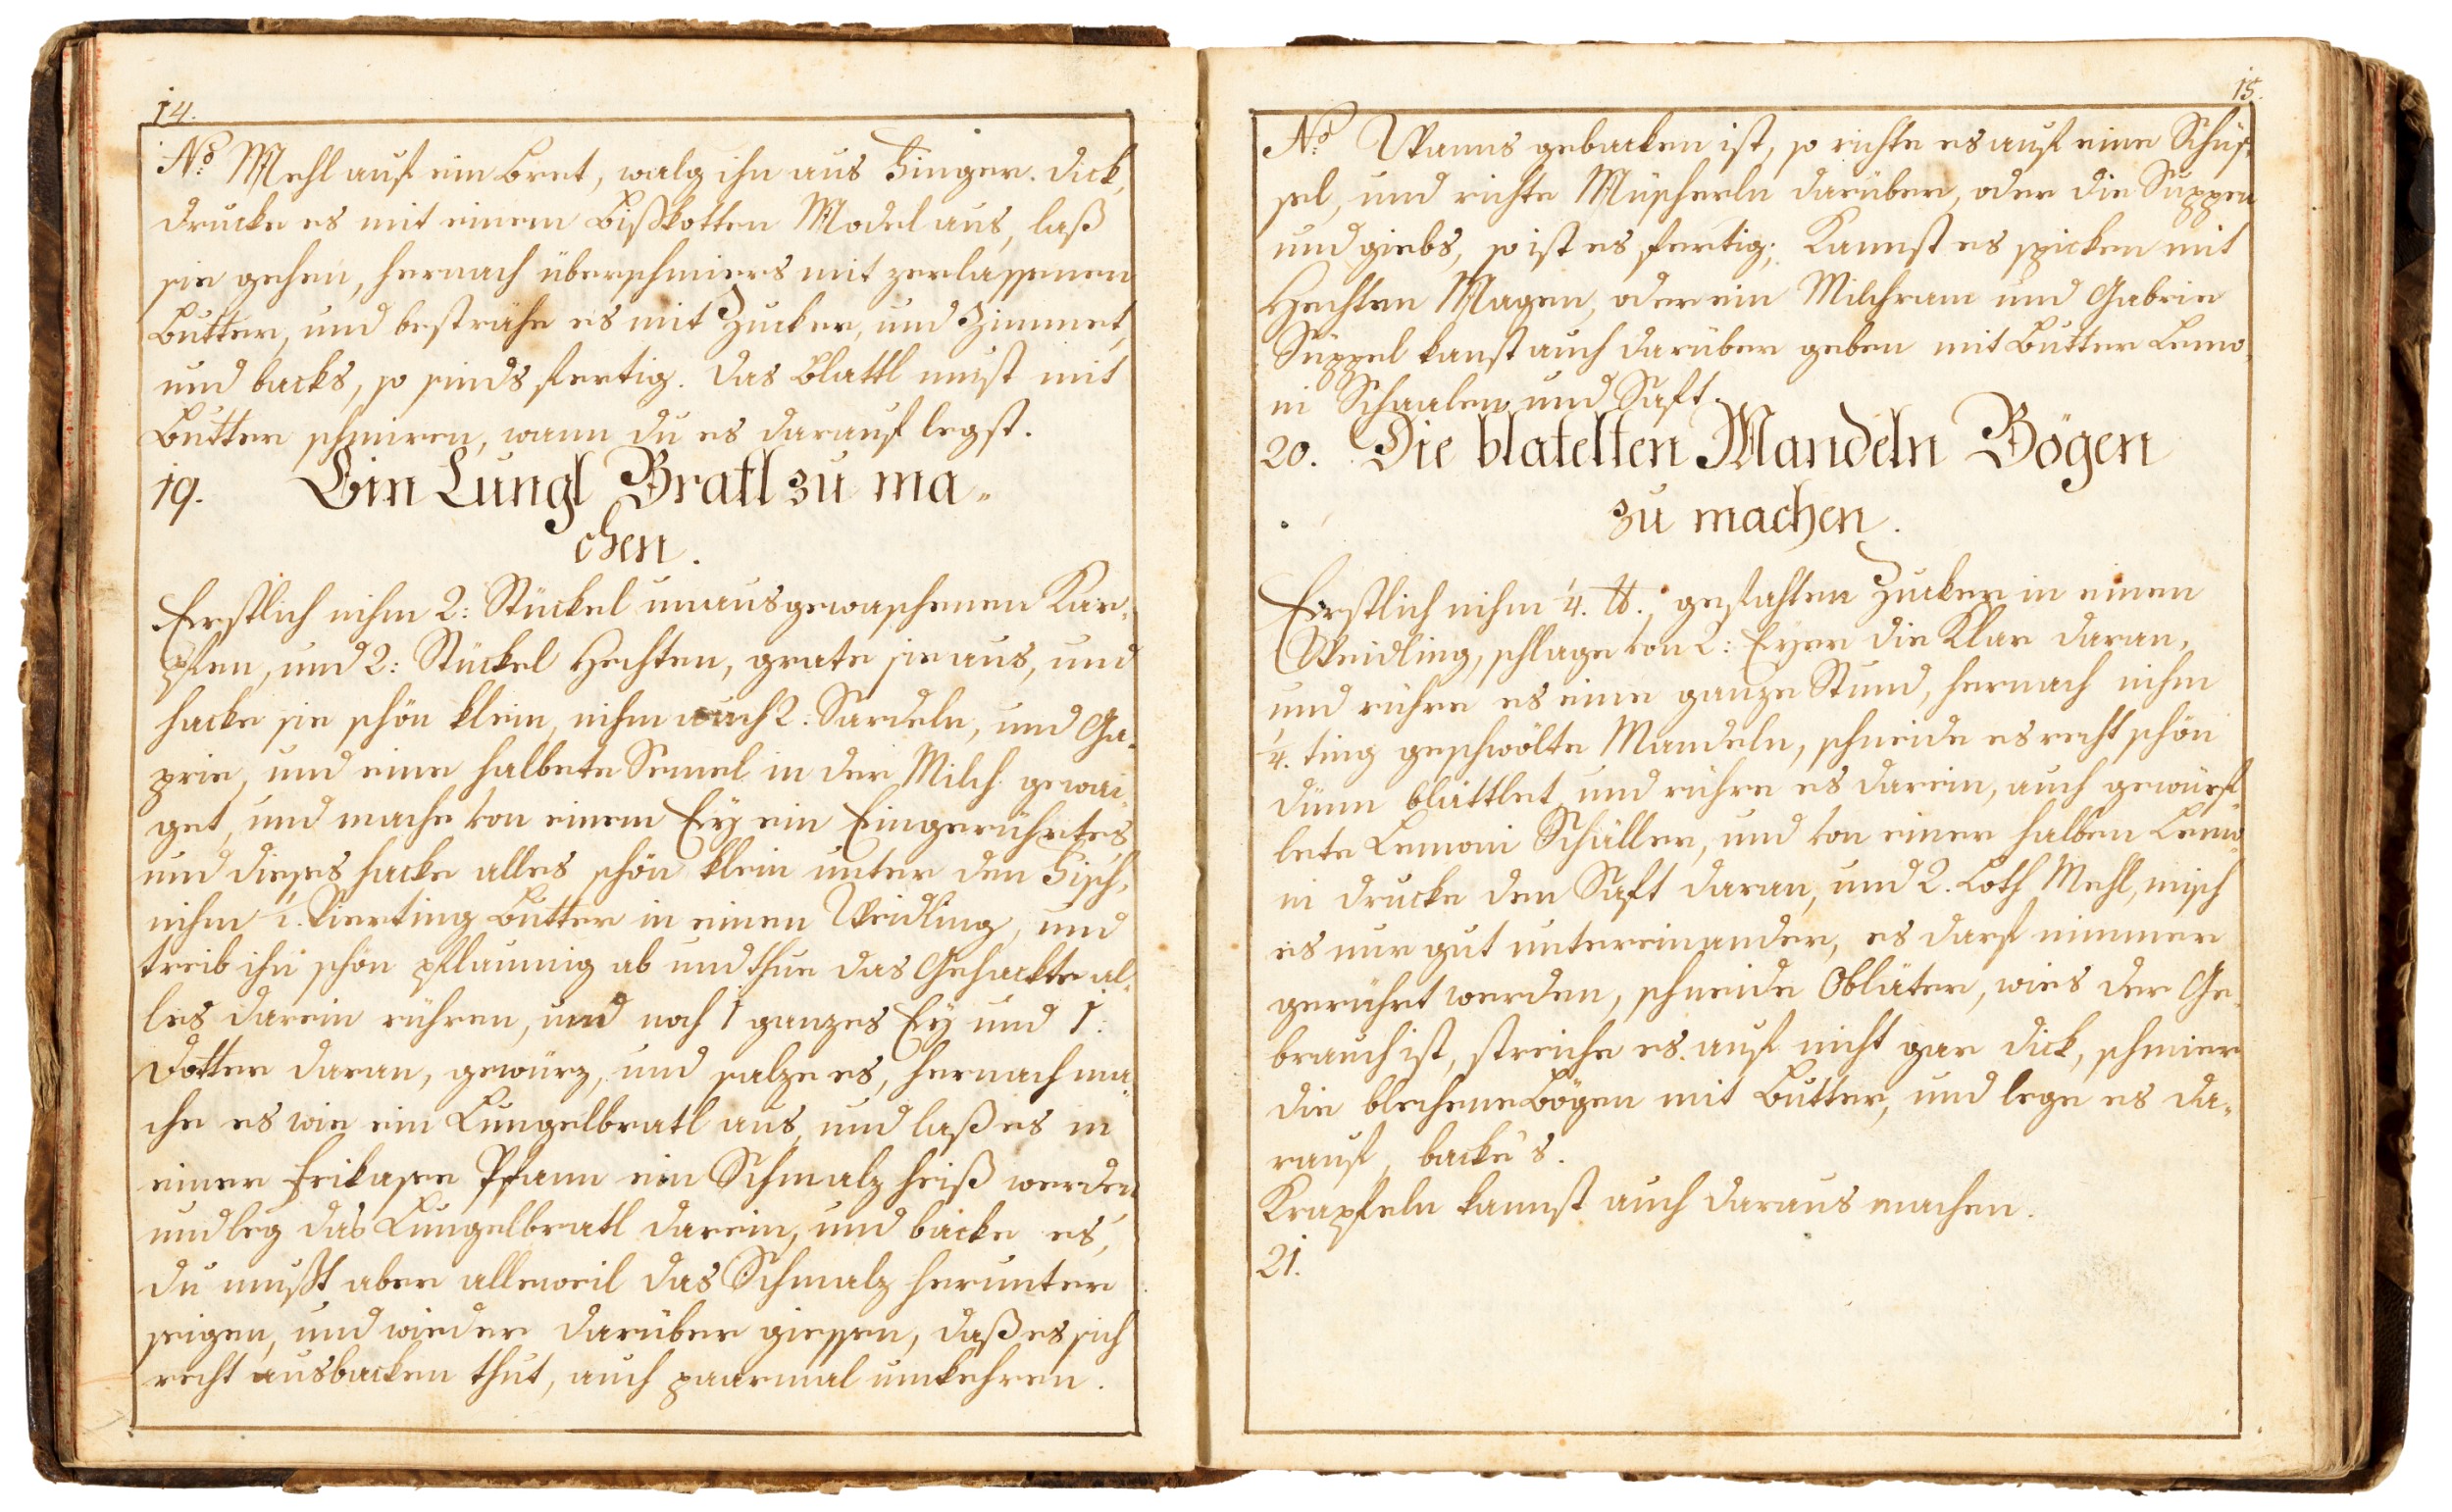 14.
No: Mehl auf ein Bret, walg ihn aus Finger dick,
drucke es mit einem Bißkotten Model aus, laß
sie gehen, hernach überschmiers mit zerlassenen
Butter, und besträhe es mit Zucker, und Zimmet,
und backs, so sinds fertig. Das Blattl must mit
Butter schmiren, wann du es darauf legst.
19. Ein Lungl Bratl zu ma=
chen.
Erstlich nihm 2: Stückel unausgewaschenen Kar=
pfen, und 2: Stückel Hechten, grate sie aus, und
hacke sie schön klein, nihm auch 2: Sardeln, und Ga=
prie, und eine halbete Semel in der Milch gewai=
get, und mache von einem Ey ein Eingerührtes
und dieses hacke alles schön klein unter den Fisch,
nihm 1. Vierting Butter in einen Weidling, und
treib ihn schön pflaumig ab und thue das Gehackte al=
les darein rühren, und noch 1 ganzes Ey und 1:
Dotter daran, gewürz, und salze es, hernach ma=
che es wie ein Lungelbratl aus, und laß es in
einer Frikasee Pfann ein Schmalz heiß werden
und leg das Lungelbratl darein, und backe es,
du mußt aber alleweil das Schmalz herunter
seigen, und wieder darüber giessen, daß es sich
recht ausbacken thut, auch paarmal umkehren.
15.
No: Wanns gebacken ist, so richte es auf eine Schüs=
sel, und richte Müscherln darüber, oder die Suppen
und giebs, so ist es fertig; Kannst es spicken mit
Hechten Magen, oder ein Milchram und Gabrie
Süppel kanst auch darüber geben mit Butter Lemo=
ni Schaalen und Saft.
20. Die blatelten Mandeln Bögen
zu machen.
Erstlich nihm 1/4. ℔. gefähten Zucker in einen
Weidling, schlage von 2: Eyer die Klar daran,
und rühre es eine ganze Stund, hernach nihm
1/4. ting geschwölte Mandeln, schneide es recht schön
dünn blättlet und rühre es darein, auch gewürf=
lete Lemoni Schäller, und von einer halben Lemo=
ni drucke den Saft daran, und 2. Loth Mehl, misch
es nur gut untereinander, es darf nimmer
gerührt werden, schneide Obläter, wies der Ge=
brauch ist, streiche es auf nicht gar dick, schmier
die blechene Bögen mit Butter, und lege es da=
rauf, backe's.
Krapfeln kannst auch daraus machen.
21.